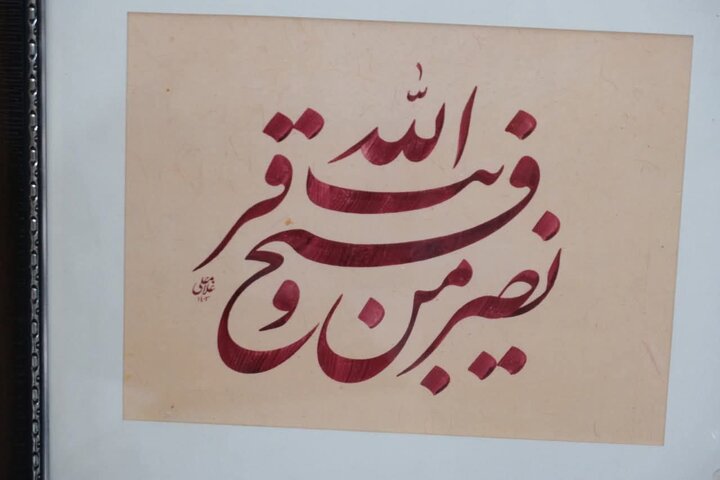 نصر من الله و فتح قریب
غلامعلی